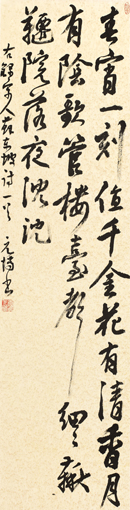 春宵一刻值千金花有清香月
有陰歌管樓臺聲細〻鞦
韆院落夜沈沈
右錄宋人蘇東坡詩一首 元書